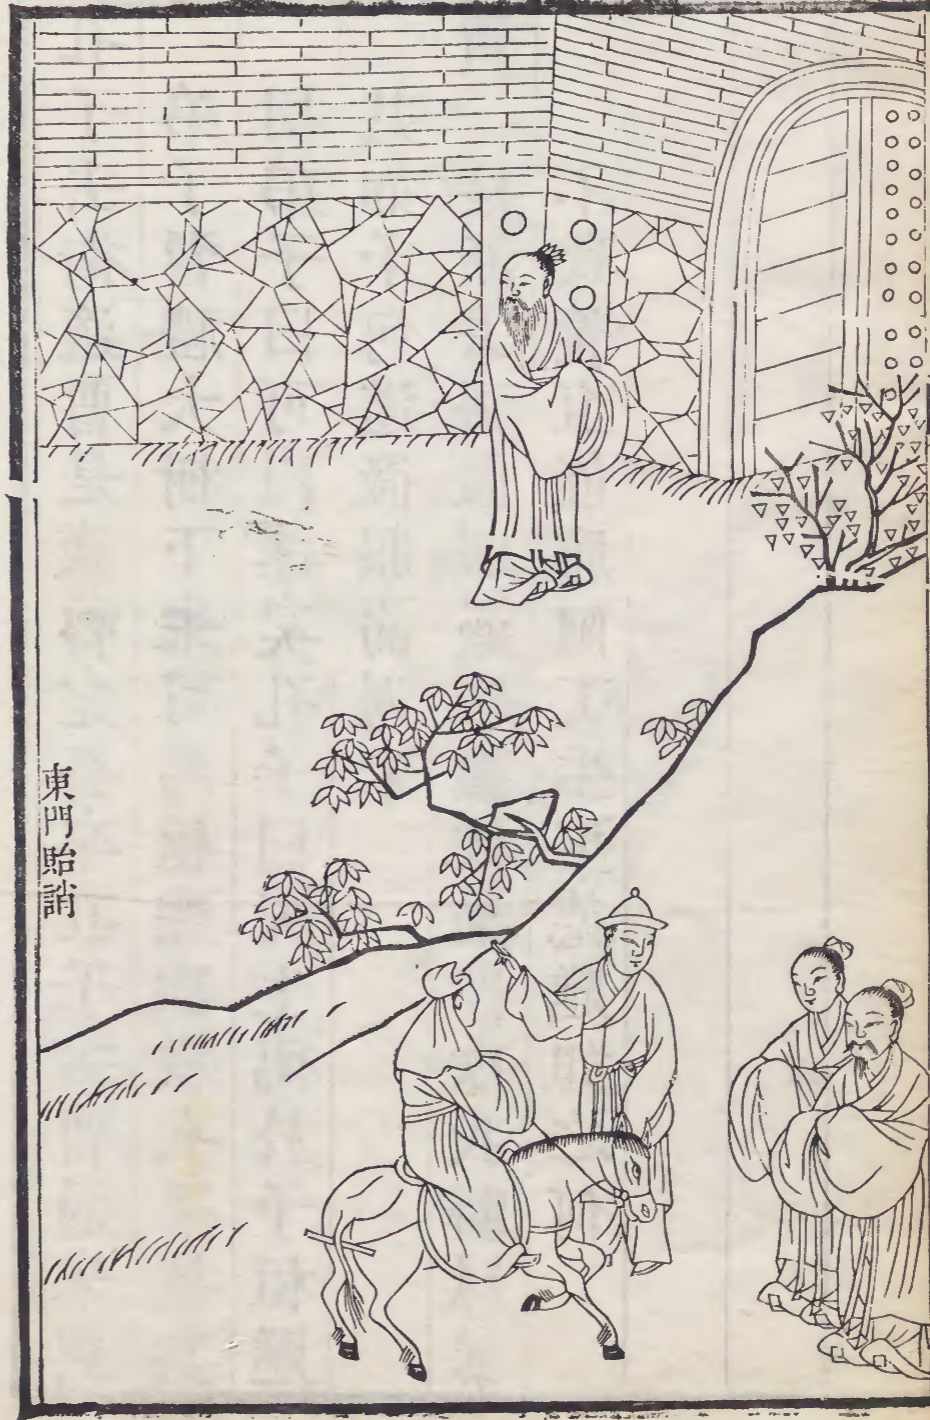 東門貽誚